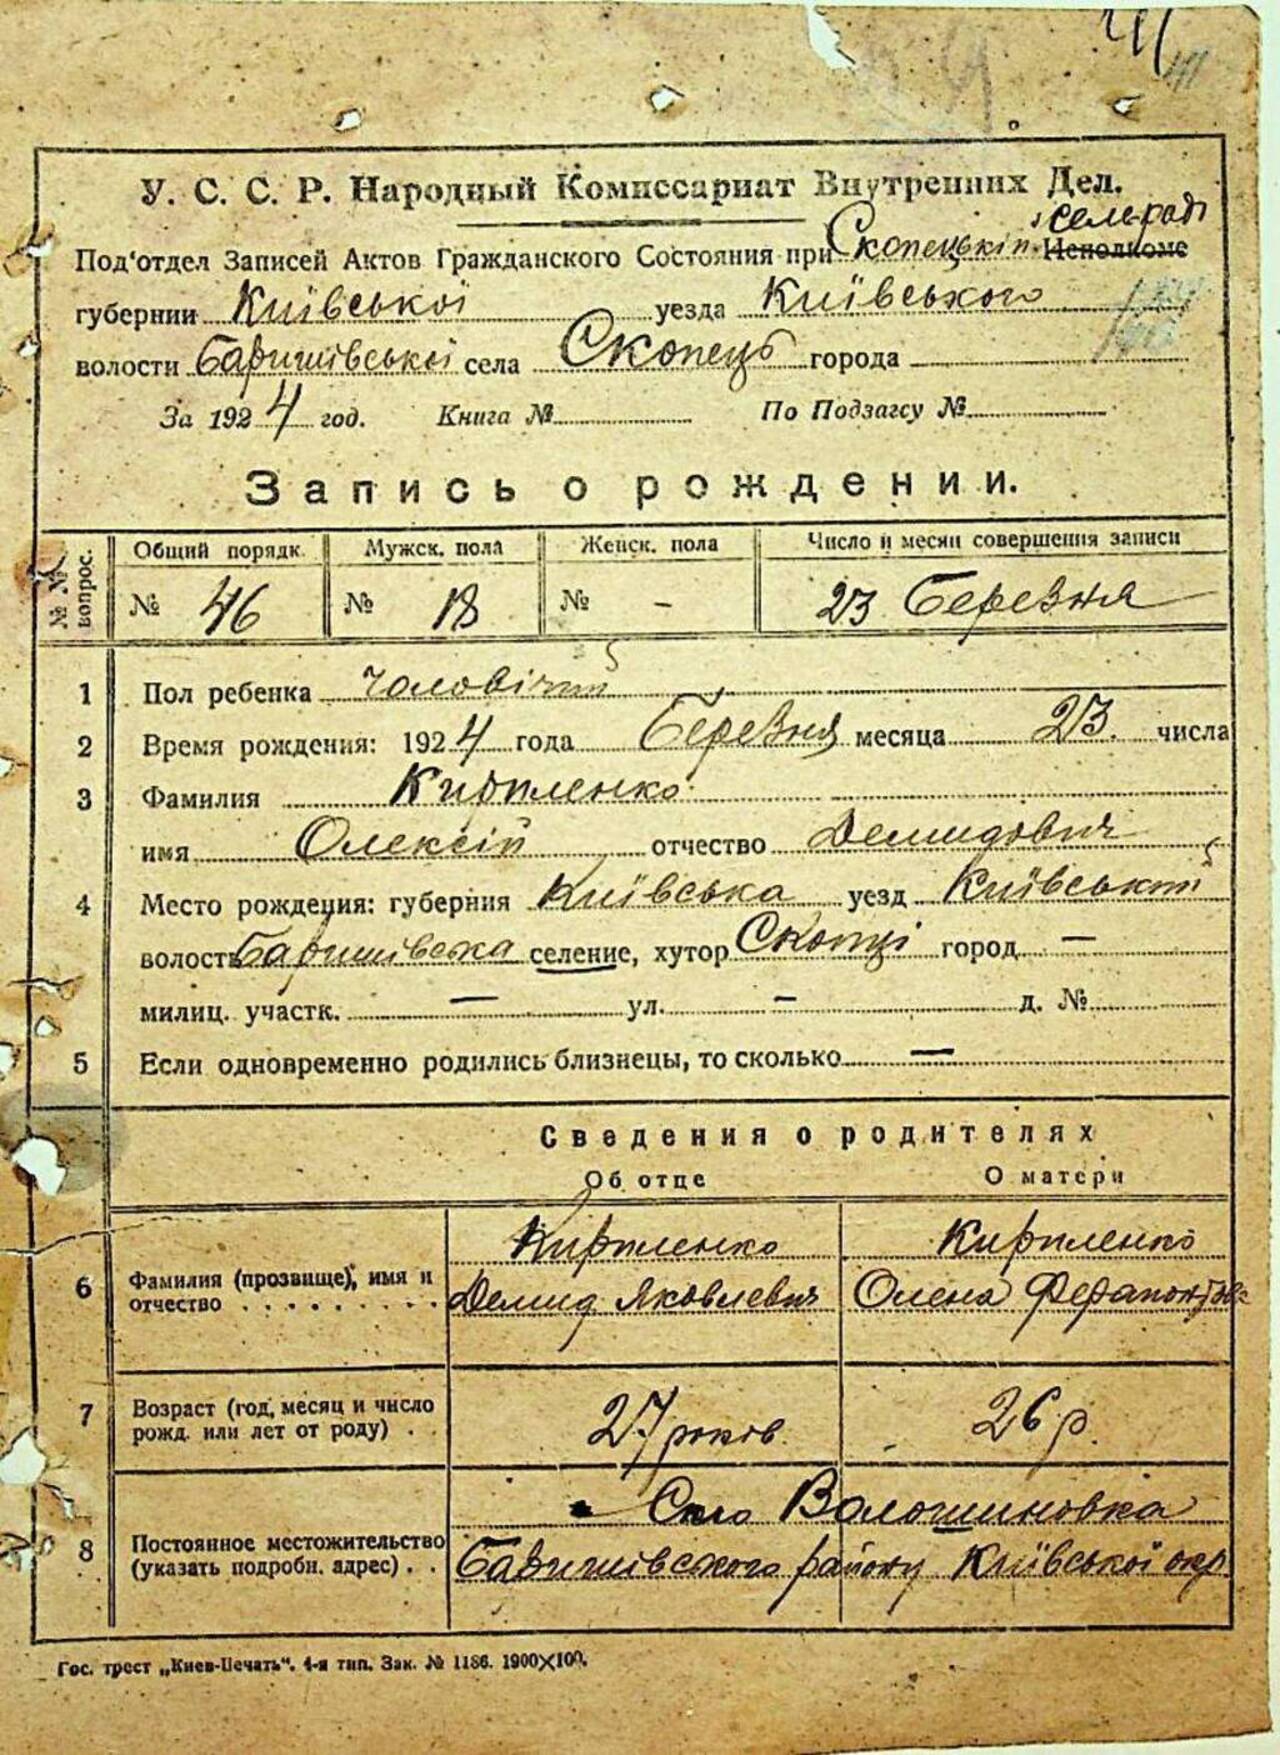 41
41
У. С. С. Р. Народный Комиссариат Внутренних Дел.
сельраді
Под'отдел Записей Актов Гражданского Состояния при Скопецькій Исполкоме
губернии Київської уезда Київського
волости Баришівської села Скопець города
За 1924 год. Книга № По Подзагсу №
Запись о рождении.
№ № вопрос. Общий порядк. Мужск. пола Женск. пола Число и месяц совершения записи
№ 46 № 18 № - 23 Березня
1 Пол ребенка чоловічий
2 Время рождения: 1924 года Березня месяца 23. числа
3 Фамилия Кирпленко
имя Олексій отчество Демидович
4 Место рождения: губерния Київська уезд Київський
волость Баришівська селение, хутор Скопці город —
милиц. участк. — ул. — д. №
5 Если одновременно родились близнецы, то сколько —
Сведения о родителях
Об отце О матери
Кирпленко Кирпленко
6 Фамилия (прозвище), имя и отчество . . . . . . . . . . Демид Яковлевич Олена Ферапонтовна
7 Возраст (год, месяц и число рожд. или лет от роду) . . 27 років 26 р.
Село Волошиновка
8 Постоянное местожительство (указать подробн. адрес) . . Баришівського району Київської окр
Гос. трест „Киев-Печать“. 4-я тип. Зак. № 1186. 1900×100.